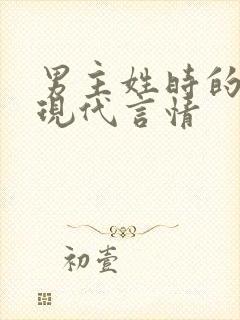 男主姓時的
現代言情
初壹